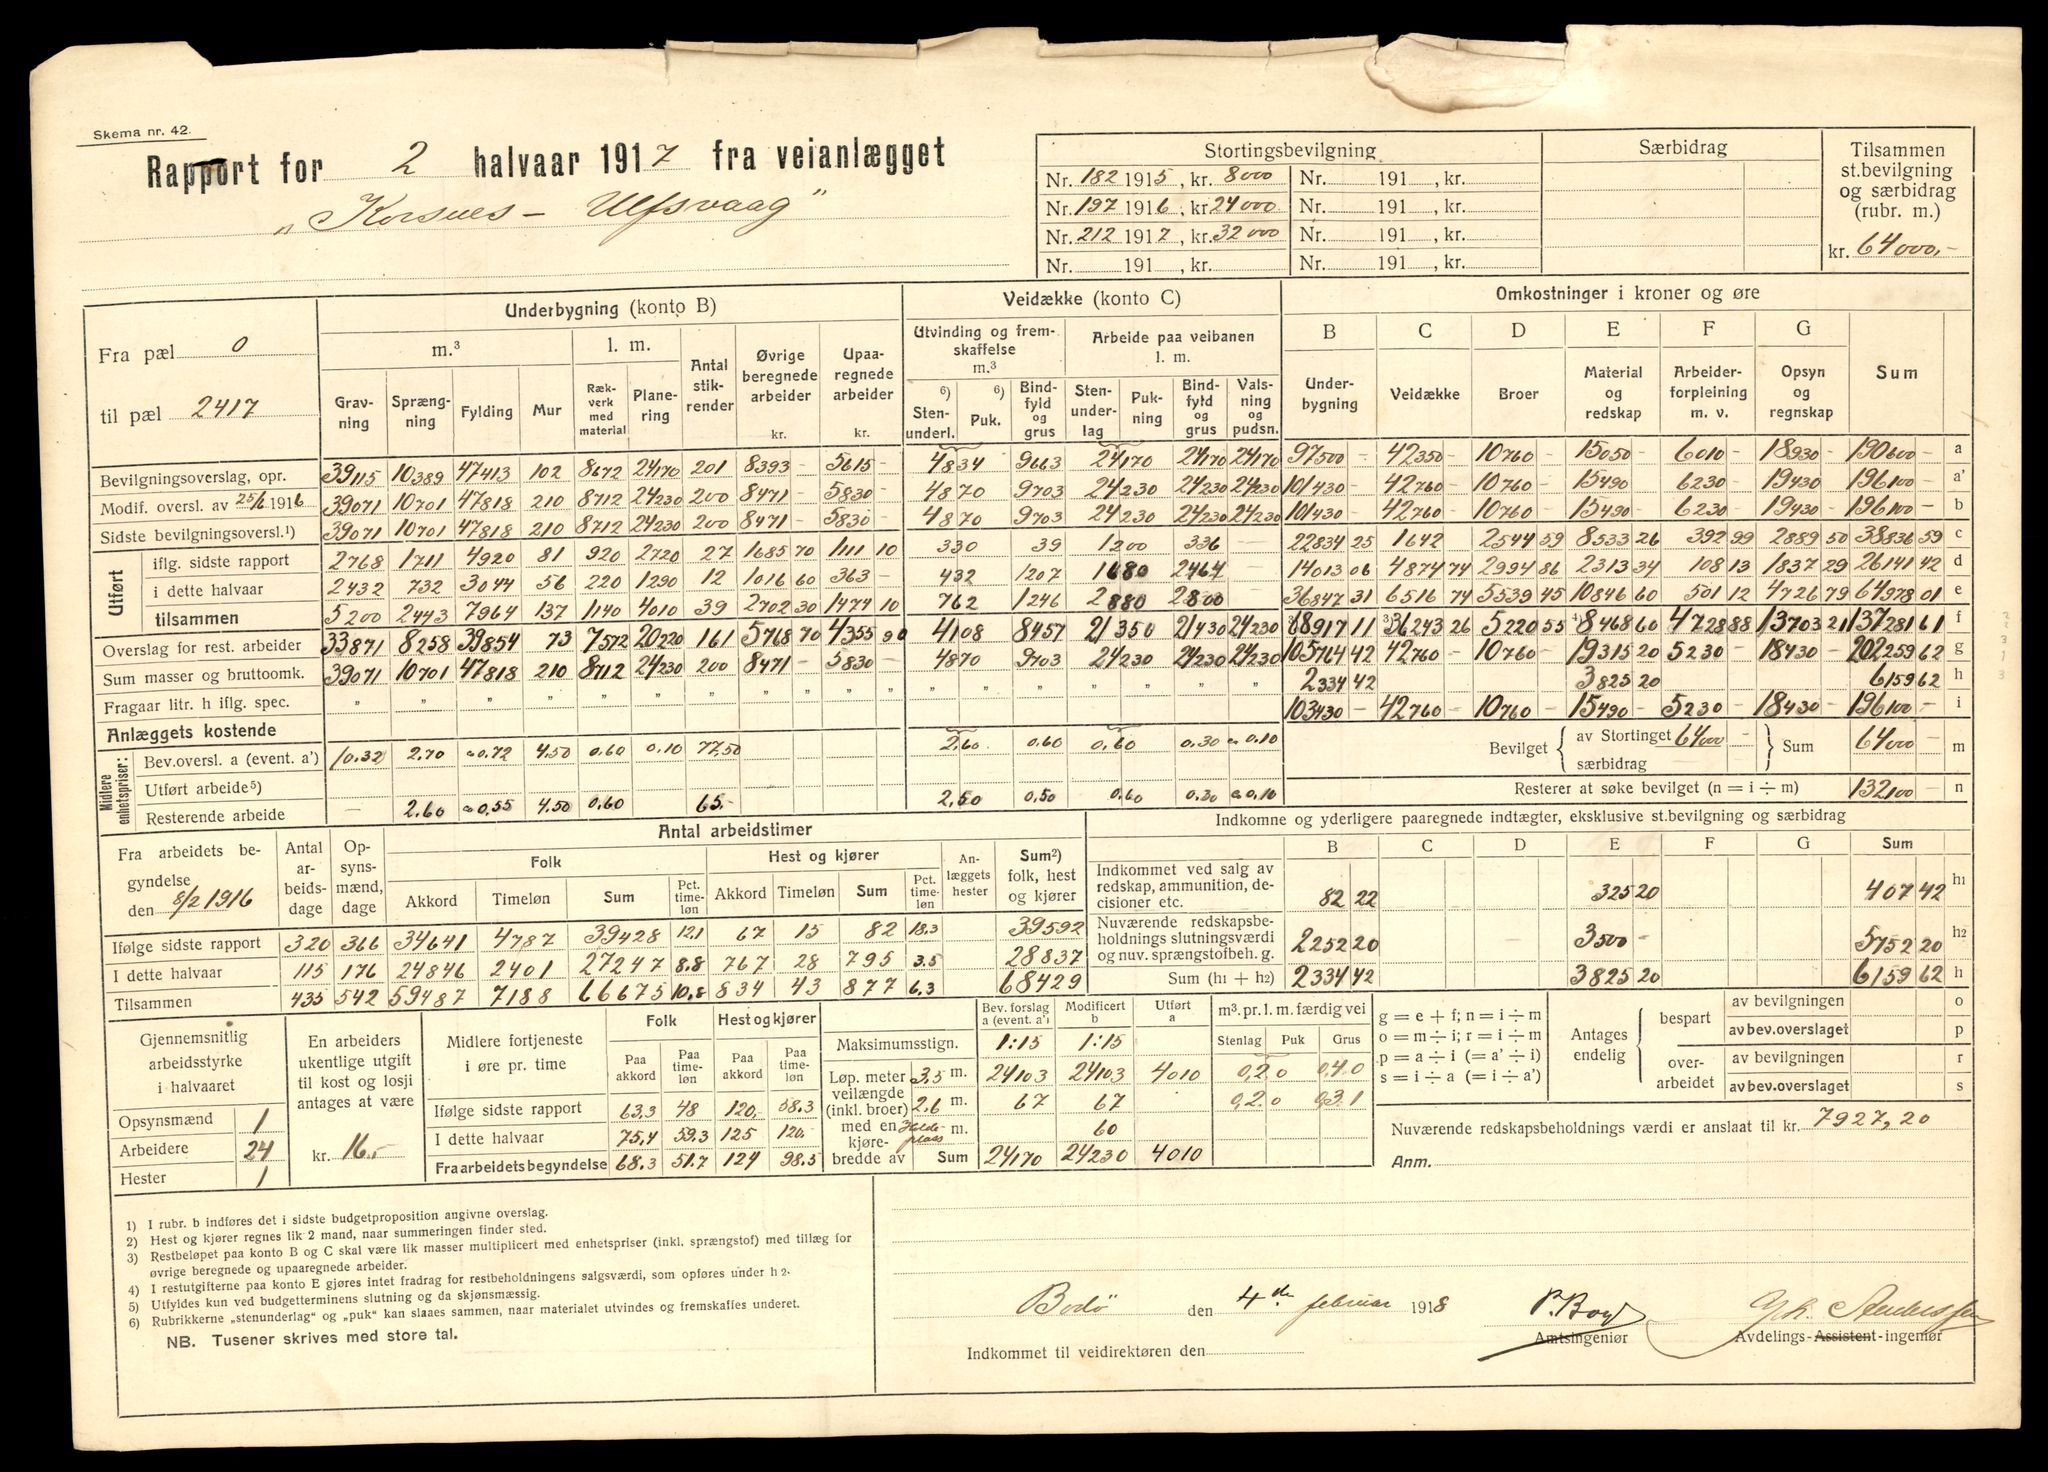 Skema nr. 42.
Rapport for 2 halvaar 1917 fra veianlægget
„Korsnes – Ulfsvaag”
Stortingsbevilgning | Særbidrag | Tilsammen st.bevilgning og særbidrag (rubr. m.)
Nr. 182 1915, kr. 8000 Nr. 191 , kr.
Nr. 197 1916, kr. 24000 Nr. 191 , kr.
Nr. 212 1917, kr. 32000 Nr. 191 , kr.
Nr. 191 , kr. Nr. 191 , kr.
kr. 64000,-
Fra pæl 0
til pæl 2417
Underbygning (konto B) | Veidække (konto C) | Omkostninger i kroner og øre
m.³ | l. m. | Antal stikrender | Øvrige beregnede arbeider kr. | Upaaregnede arbeider kr.
Gravning | Sprængning | Fylding | Mur | Rækverk med material | Planering
Utvinding og fremskaffelse m.³ | Arbeide paa veibanen l. m.
6) Stenunderl. | 6) Puk. | Bindfyld og grus | Stenunderlag | Pukning | Bindfyld og grus | Valsning og pudsn.
B | C | D | E | F | G
Underbygning | Veidække | Broer | Material og redskap | Arbeiderforpleining m. v. | Opsyn og regnskap | Sum
Bevilgningsoverslag, opr. 39115 10389 47413 102 8672 24170 201 8393 – 5615 – 4834 9663 24170 24170 24170 97500 – 42350 – 10760 – 15050 – 6010 – 18930 – 190600 – a
Modif. oversl. av 25/6 1916 39071 10701 47818 210 8712 24230 200 8471 – 5830 – 4870 9703 24230 24230 24230 101430 – 42760 – 10760 – 15490 – 6230 – 19430 – 196100 – a'
Sidste bevilgningsoversl.¹) 39071 10701 47818 210 8712 24230 200 8471 – 5830 – 4870 9703 24230 24230 24230 101430 – 42760 – 10760 – 15490 – 6230 – 19430 – 196100 – b
Utført
iflg. sidste rapport 2768 1711 4920 81 920 2720 27 1685 70 1111 10 330 39 1200 336 – 22834 25 1642 – 2544 59 8533 26 392 99 2889 50 38836 59 c
i dette halvaar 2432 732 3044 56 220 1290 12 1016 60 363 – 432 1207 1680 2464 – 14013 06 4874 74 2994 86 2313 34 108 13 1837 29 26141 42 d
tilsammen 5200 2443 7964 137 1140 4010 39 2702 30 1474 10 762 1246 2880 2800 – 36847 31 6516 74 5539 45 10846 60 501 12 4726 79 64978 01 e
Overslag for rest. arbeider 33871 8258 39854 73 7572 20220 161 5768 70 4355 90 4108 8457 21350 21430 24230 68917 11 36243 26 5220 55 8468 60 4728 88 13703 21 137281 61 f
Sum masser og bruttoomk. 39071 10701 47818 210 8712 24230 200 8471 – 5830 – 4870 9703 24230 24230 24230 105764 42 42760 – 10760 – 19315 20 5230 – 18430 – 202259 62 g
Fragaar litr. h iflg. spec. „ „ „ „ „ „ „ „ „ „ „ „ „ „ 2334 42 3825 20 6159 62 h
Anlæggets kostende 103430 – 42760 – 10760 – 15490 – 5230 – 18430 – 196100 – i
Midlere enhetspriser:
Bev.oversl. a (event. a') 10.32 2.70 0.72 4.50 0.60 0.10 77.50 2.60 0.60 0.60 0.30 0.10
Utført arbeide⁵)
Resterende arbeide – 2.60 0.55 4.50 0.60 65.- 2.50 0.50 0.60 0.30 0.10
Bevilget { av Stortinget 64000 – særbidrag – } Sum 64000 – m
Resterer at søke bevilget (n = i ÷ m) 132100 – n
Fra arbeidets begyndelse den 8/2 1916
Antal arbeidsdage | Opsynsmænd, dage | Antal arbeidstimer
Folk | Hest og kjører | Anlæggets hester | Sum²) folk, hest og kjører
Akkord | Timeløn | Sum | Pct. timeløn | Akkord | Timeløn | Sum | Pct. timeløn
Ifølge sidste rapport 320 366 34641 4787 39428 12.1 67 15 82 18.3 39592
I dette halvaar 115 176 24846 2401 27247 8.8 767 28 795 3.5 28837
Tilsammen 435 542 59487 7188 66675 10.8 834 43 877 6.3 68429
Indkomne og yderligere paaregnede indtægter, eksklusive st.bevilgning og særbidrag
B | C | D | E | F | G | Sum
Indkommet ved salg av redskap, ammunition, decisioner etc. 82 22 325 20 407 42 h1
Nuværende redskapsbeholdnings slutningsværdi og nuv. sprængstofbeh. g. 2252 20 3500 – 5752 20 h2
Sum (h1 + h2) 2334 42 3825 20 6159 62 h
Gjennemsnitlig arbeidsstyrke i halvaaret
Opsynsmænd 1
Arbeidere 24
Hester 1
En arbeiders ukentlige utgift til kost og losji antages at være
kr. 16,-
Midlere fortjeneste i øre pr. time | Folk | Hest og kjører
Paa akkord | Paa timeløn | Paa akkord | Paa timeløn
Ifølge sidste rapport 63.3 48 120,- 58.3
I dette halvaar 75,4 59.3 125 120,-
Fra arbeidets begyndelse 68.3 51.7 124 98.5
Bev. forslag a (event. a') | Modificert b | Utført a
Maksimumsstign. 1:15 1:15
Løp. meter veilængde (inkl. broer) med en kjørebredde av
3.5 m. 24103 24103 4010
2.6 m. 67 67
m. 60
Sum 24170 24230 4010
m³. pr. l. m. færdig vei
Stenlag | Puk | Grus
0,20 0,40
0,20 0,31
g = e + f; n = i ÷ m
o = m ÷ i; r = i ÷ m
p = a ÷ i (= a' ÷ i)
s = i ÷ a (= i ÷ a')
Antages endelig
bespart av bevilgningen o
av bev.overslaget p
overarbeidet av bevilgningen r
av bev.overslaget s
Nuværende redskapsbeholdnings værdi er anslaat til kr. 7927,20
Anm.
1) I rubr. b indføres det i sidste budgetproposition angivne overslag.
2) Hest og kjører regnes lik 2 mand, naar summeringen finder sted.
3) Restbeløpet paa konto B og C skal være lik masser multiplicert med enhetspriser (inkl. sprængstof) med tillæg for
øvrige beregnede og upaaregnede arbeider.
4) I restutgifterne paa konto E gjøres intet fradrag for restbeholdningens salgsværdi, som opføres under h 2.
5) Utfyldes kun ved budgetterminens slutning og da skjønsmæssig.
6) Rubrikkerne „stenunderlag" og „puk" kan slaaes sammen, naar materialet utvindes og fremskaffes underet.
NB. Tusener skrives med store tal.
Bodø den 4de februar 1918
Amtsingeniør
Avdelings-Assistent-ingeniør
Indkommet til veidirektøren den